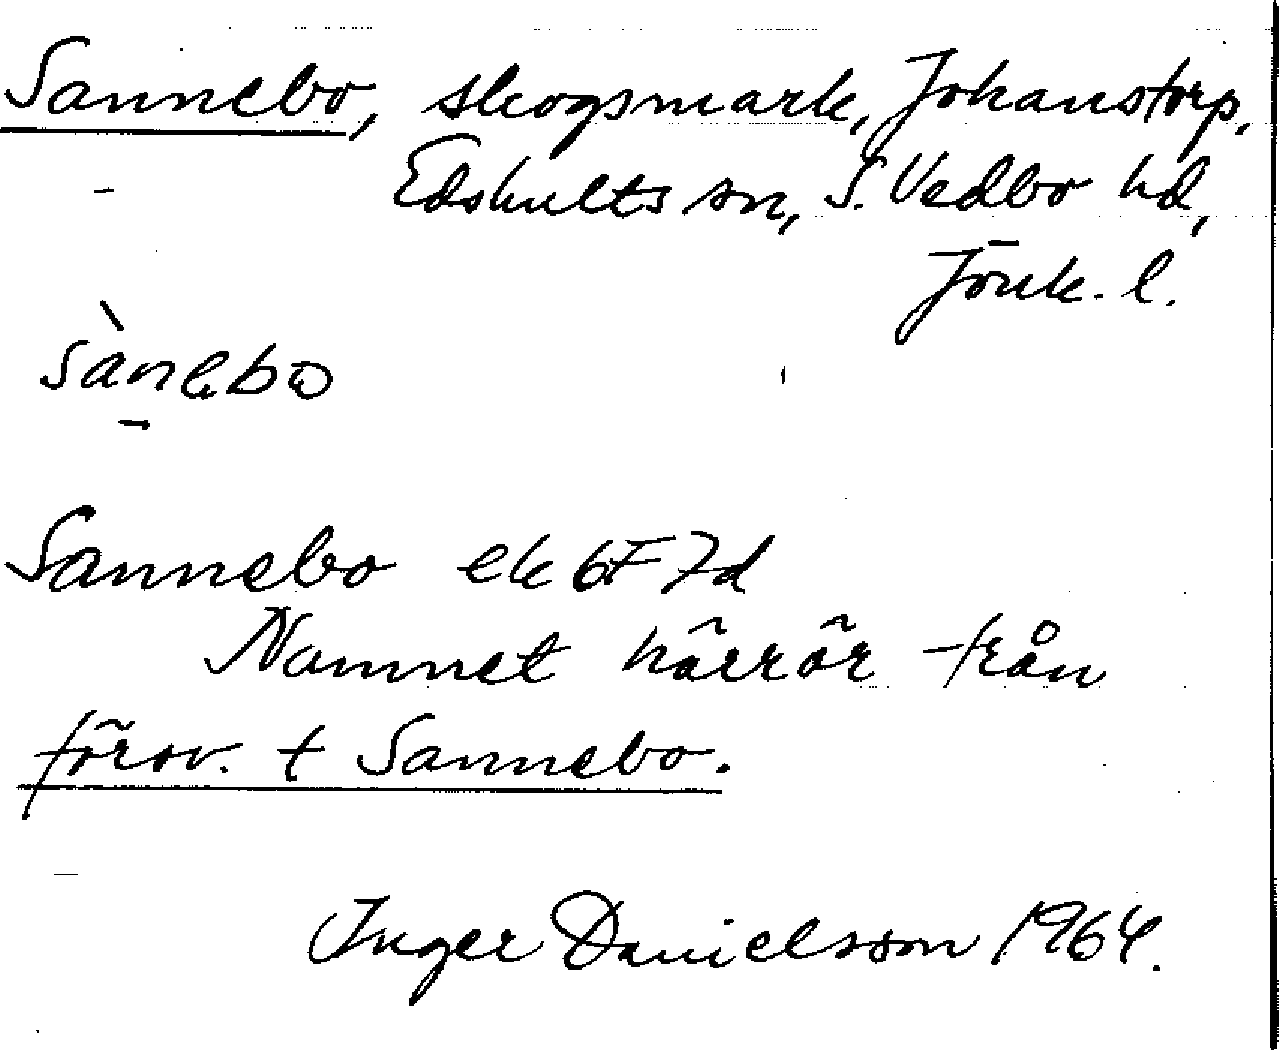 Sannebo, skogsmark, Johanstorp,
Edshults sn, S. Vedbo hd,
Jönk. l.
sànebo
Sannebo ek 6F7d
Namnet härrör från
försv. t Sannebo.
Inger Danielsson 1964.